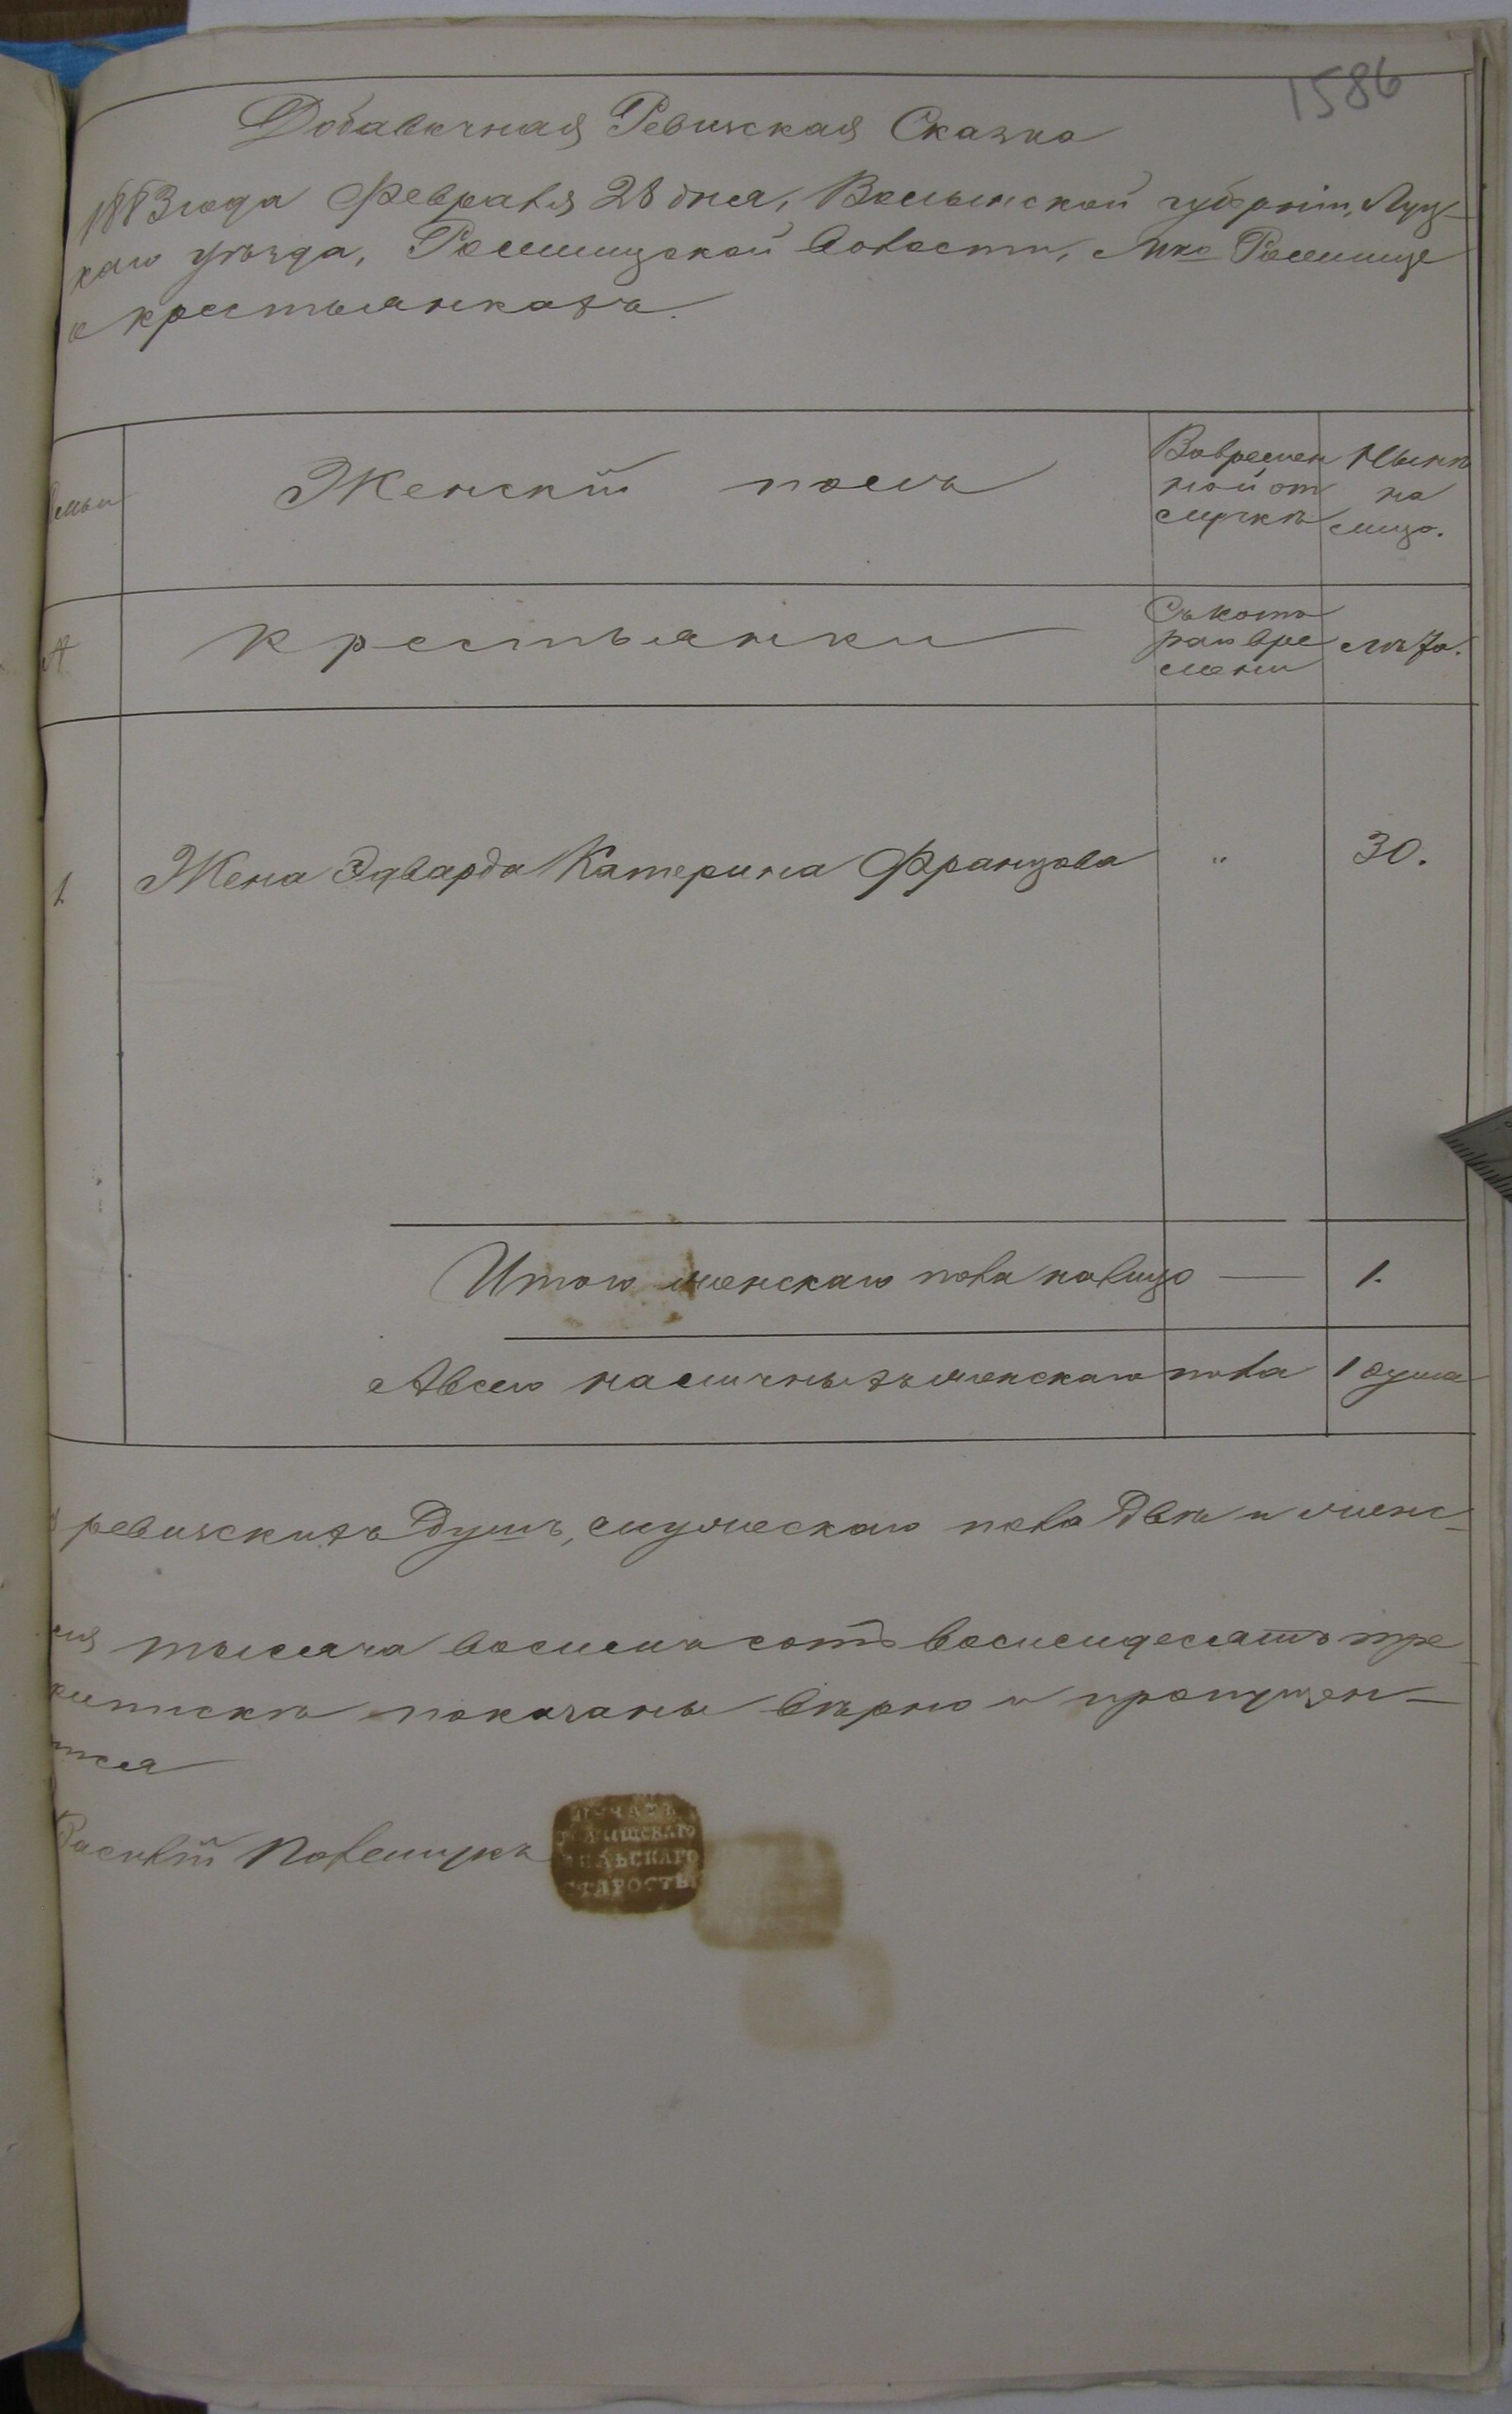 1586
Добавочная Ревижская Сказка
1883 года Февраля 28 дня, Волынской губерніи, Луц-
каго уѣзда, Рожищской волости, Мко Рожище
о крестьянкахъ.
Женскій полъ
Вовремен
ной от
лучкѣ
Нынѣ
на
лицо.
Крестьянки
Съ кото
раго вре
мени
лѣта.
1
Жена Эдварда Катерина Францова
"
30.
Итого женскаго пола налицо — 1.
А всего наличныхъ женскаго пола 1 душа
ревижскихъ душъ, мужескаго пола двѣ и женс-
тысяча восемь сотъ восемдесятъ тре
показаны вѣрно и пропущен-
Василій Полещукъ
ПЕЧАТЬ
РОЖИЩСКАГО
СЕЛЬСКАГО
СТАРОСТЫ